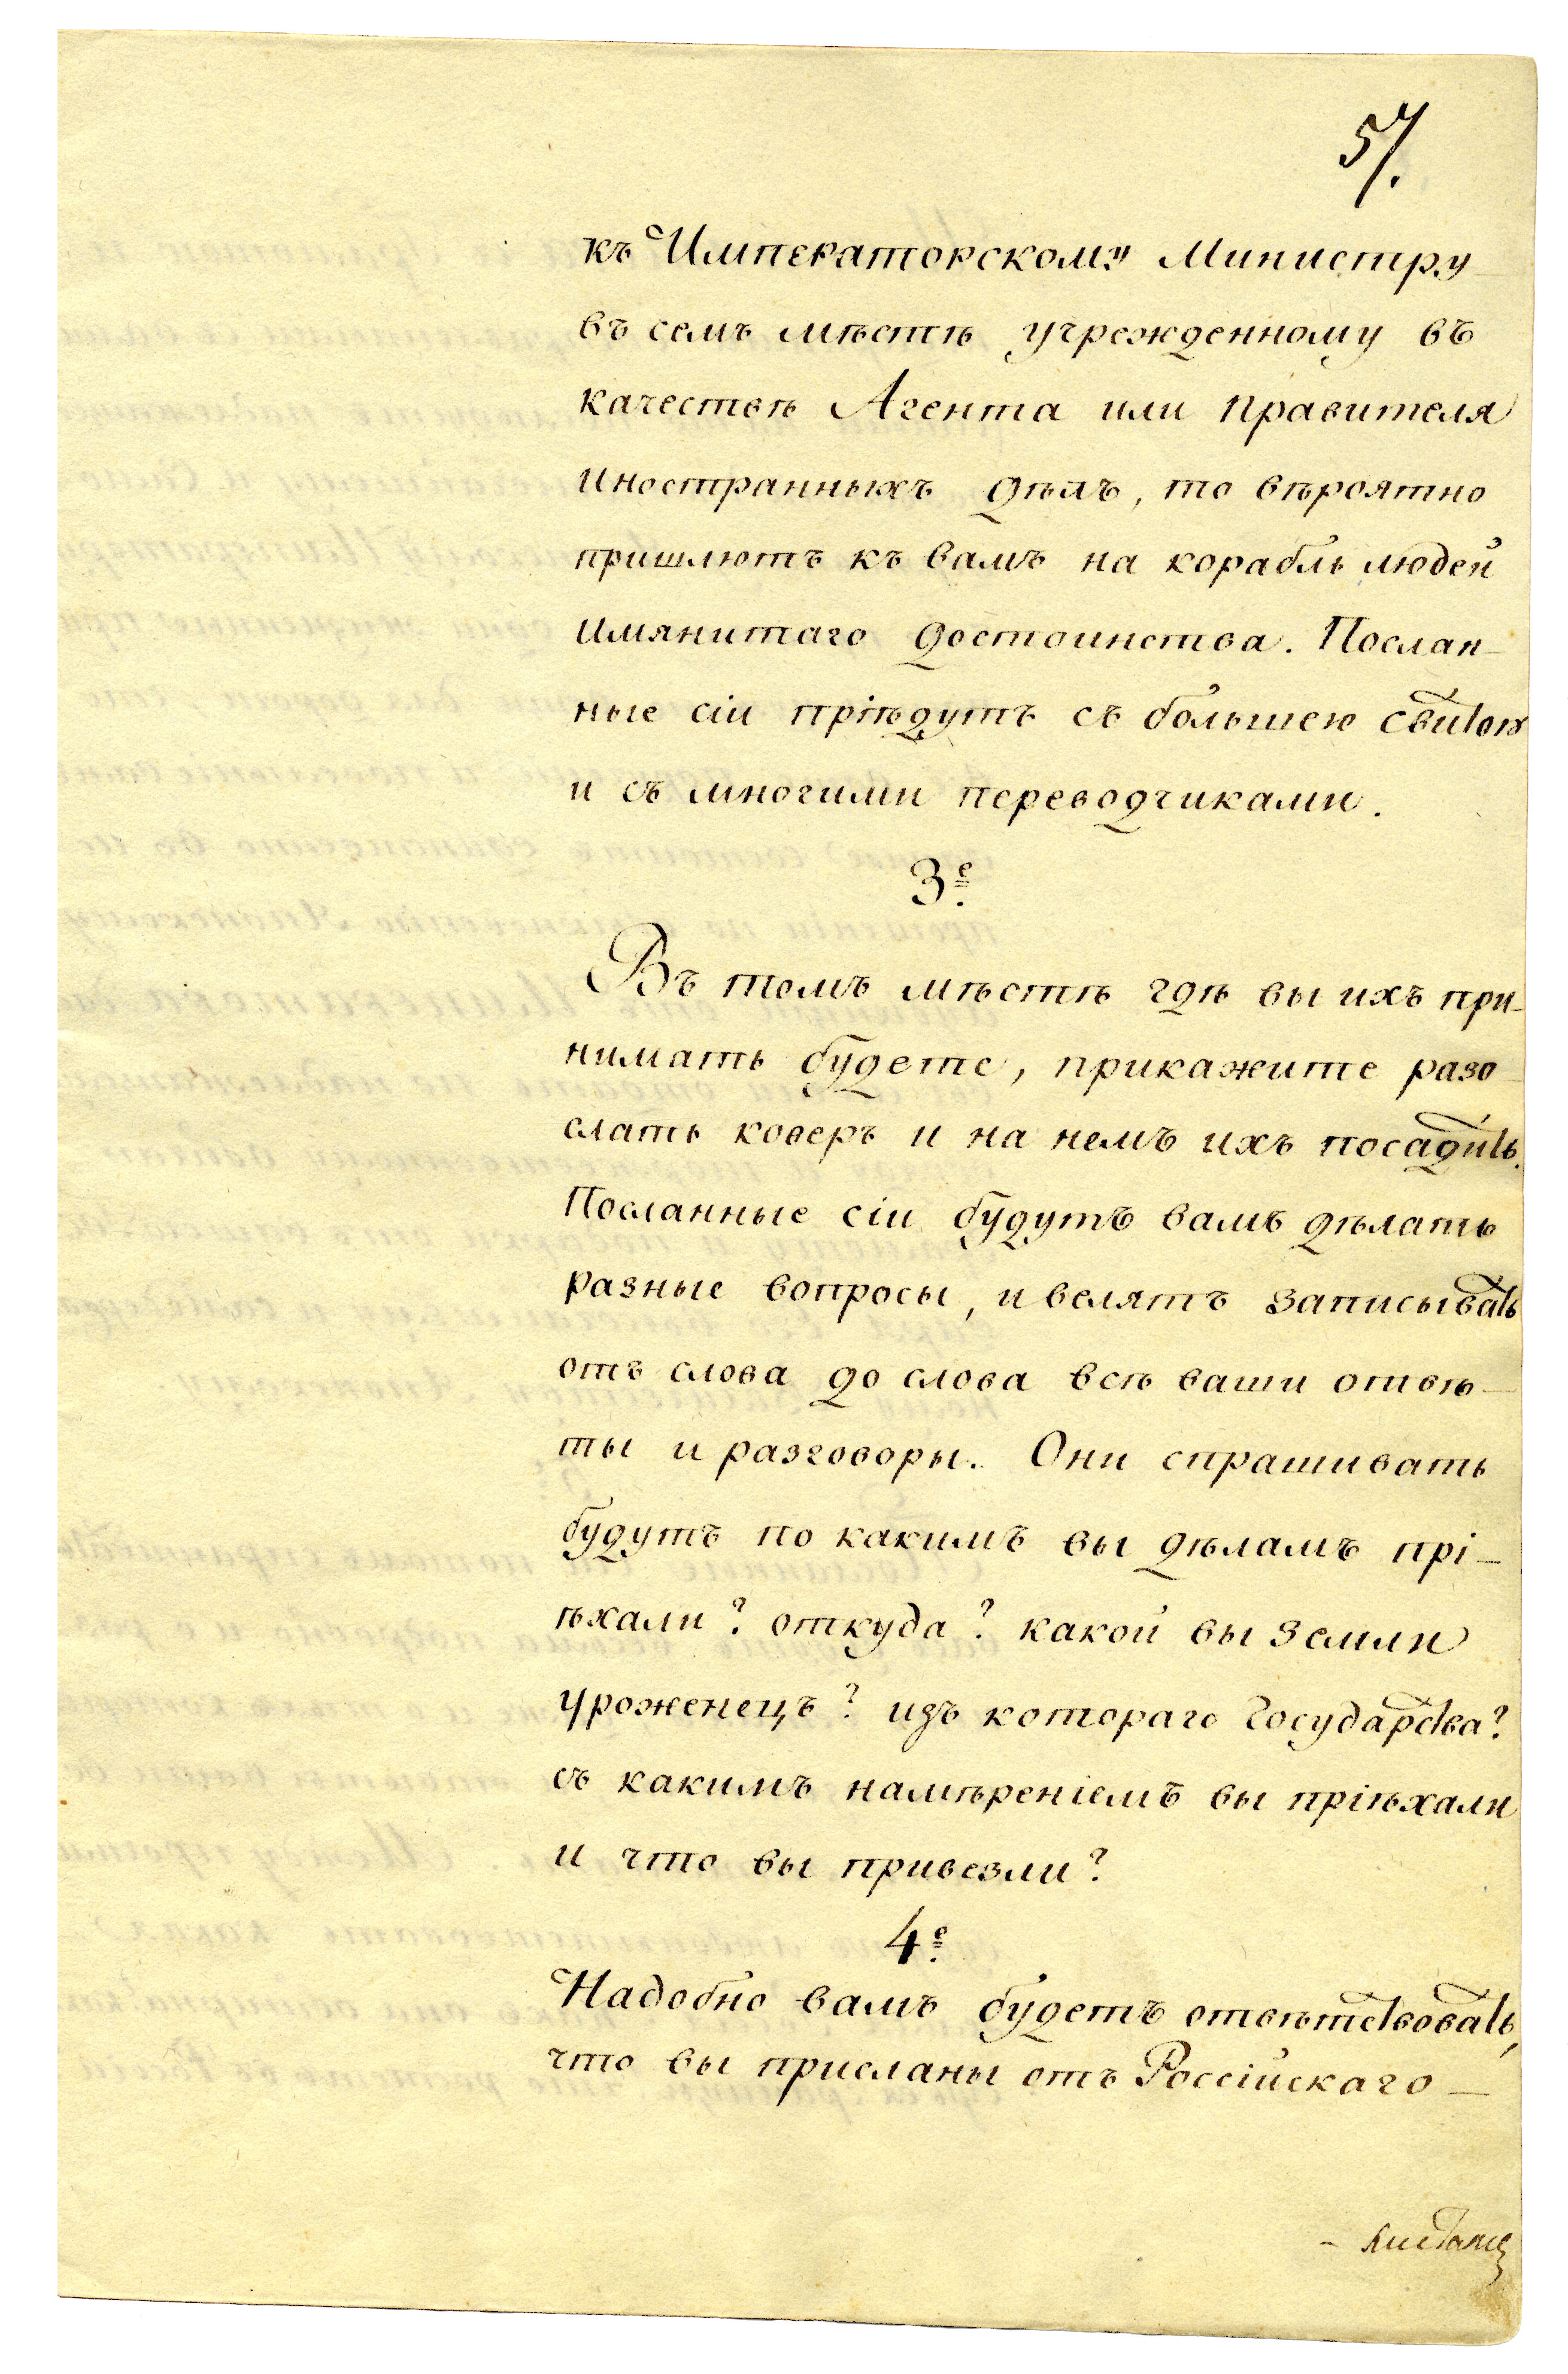 57.
къ Императорскому Министру
въ семъ мѣстѣ учрежденному въ
качествѣ Агента или Правителя
иностранныхъ дѣлъ, то вѣроятно
пришлютъ къ вамъ на корабль людей
имянитаго достоинства. Послан-
ные сіи пріѣдутъ съ большею свитою
и съ многими переводчиками.
3е.
Въ томъ мѣстѣ гдѣ вы ихъ при-
нимать будете, прикажите разо-
слать коверъ и на немъ ихъ посадить.
Посланные сіи будутъ вамъ дѣлать
разные вопросы, и велятъ записывать
отъ слова до слова всѣ ваши отвѣ-
ты и разговоры. Они спрашивать
будутъ по какимъ вы дѣламъ прі-
ѣхали? откуда? какой вы земли
уроженецъ? изъ котораго Государства?
съ какимъ намѣреніемъ вы пріѣхали
и что вы привезли?
4е.
Надобно вамъ будетъ отвѣтствовать,
что вы присланы отъ Россійскаго